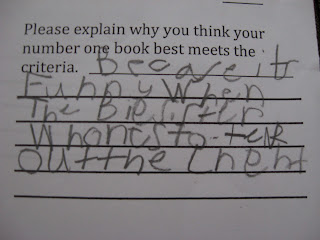 Please explain why you think your
number one book best meets the
criteria. Becaseits
Funny When
The Big Sister
Whants to-teK
out the